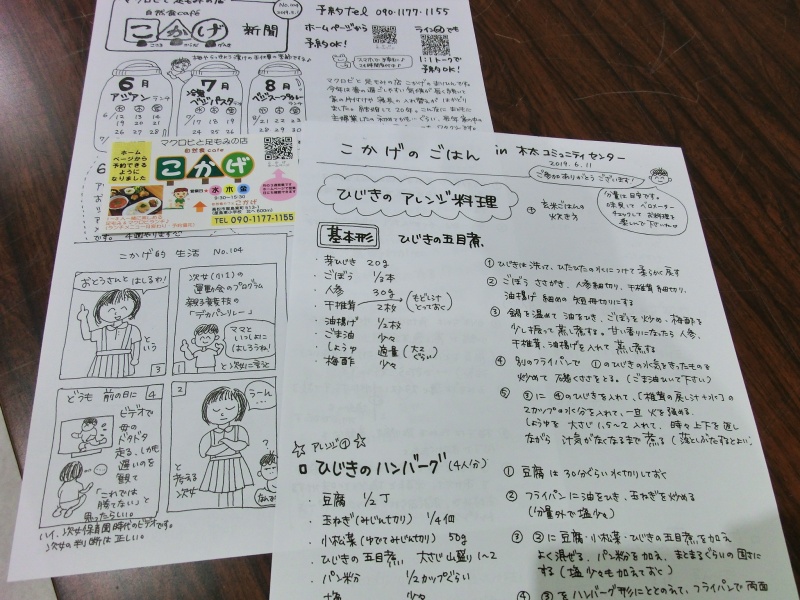 マクロビと足もみの店
自然食café
こかげ
新聞
No.104
予約tel 090-1177-1155
ホームページから
予約OK!
ラインでも
1:1トークで
予約OK!
6月
アジアン
ランチ
水 木 金
7月
冷製
ベジパスタ
水 木 金
8月
ベジスープカレー
水 木 金
マクロビと足もみの店
自然食cafe
こかげ
ホーム
ページから
予約できる
ように
なりました
営業日
水 木 金
9:30~15:30
TEL 090-1177-1155
こかげ的 生活 No.104
おとうさんとはしるわ!
という
3
次女(小1)の
運動会のプログラム
親子競技の
「デカパンリレー」
ママと
いっしょに
はしろうね!
と次女に言うと
どうも 前の日に
4
ビデオで
母の
ドタドタ
走る、しかも
遅いのを
観て
「これでは
勝てない」と
思ったらしい。
2
うーん…
と考える
次女
ハイ、次女保育園時代のビデオです。
次女の判断は正しい。
こかげのごはん in 木太コミュニティセンター
2019.6.11
ご参加ありがとうございます!
ひじきのアレンジ料理
玄米ごはんの
炊き方
分量は目安です。
味見して ベロメーター
チェックして お料理を
楽しんで下さいね
基本形 ひじきの五目煮
・芽ひじき 20g
・ごぼう 1/2本
・人参 30g
・干椎茸 2枚
(もどし汁
とっておく)
・油揚げ 1/2枚
・ごま油 少々
・しょうゆ 適量(大2ぐらい)
・梅酢 少々
① ひじきは洗って、ひたひたの水につけて柔らかく戻す
② ごぼう ささがき、人参細切り、干椎茸 細切り、
油揚げ 細めの短冊切りにする
③ 鍋を温めて油をひき、ごぼうを炒め、梅酢を
少し振って蒸し煮する。甘い香りになったら人参、
干椎茸、油揚げを入れて蒸し煮する
④ 別のフライパンで ①のひじきの水気をきったものを
炒めて 磯くささをとる。(ごま油ひいて下さい)
⑤ ③に④のひじきを入れて、(椎茸の戻し汁+水)の
2カップの水分を入れて、一旦 火を強める。
しょうゆを 大さじ1.5~2入れて、時々上下を返し
ながら 汁気がなくなるまで煮る(落としぶたするとよい)
☆アレンジ①☆
ひじきのハンバーグ(4人分)
・豆腐 1/2丁
・玉ねぎ(みじん切り) 1/4個
・小松菜(ゆでてみじん切り) 50g
・ひじきの五目煮 大さじ山盛り1~2
・パン粉 1/2カップぐらい
・塩 少々
① 豆腐は30分ぐらい水切りしておく
② フライパンに油をひき、玉ねぎを炒める
(分量外で塩少々)
③ ②に豆腐・小松菜・ひじきの五目煮を加え
よく混ぜる。パン粉を加え、まとまるぐらいの固さに
する(塩 少々も加えておく)
④ ③をハンバーグ形にととのえて、フライパンで両面